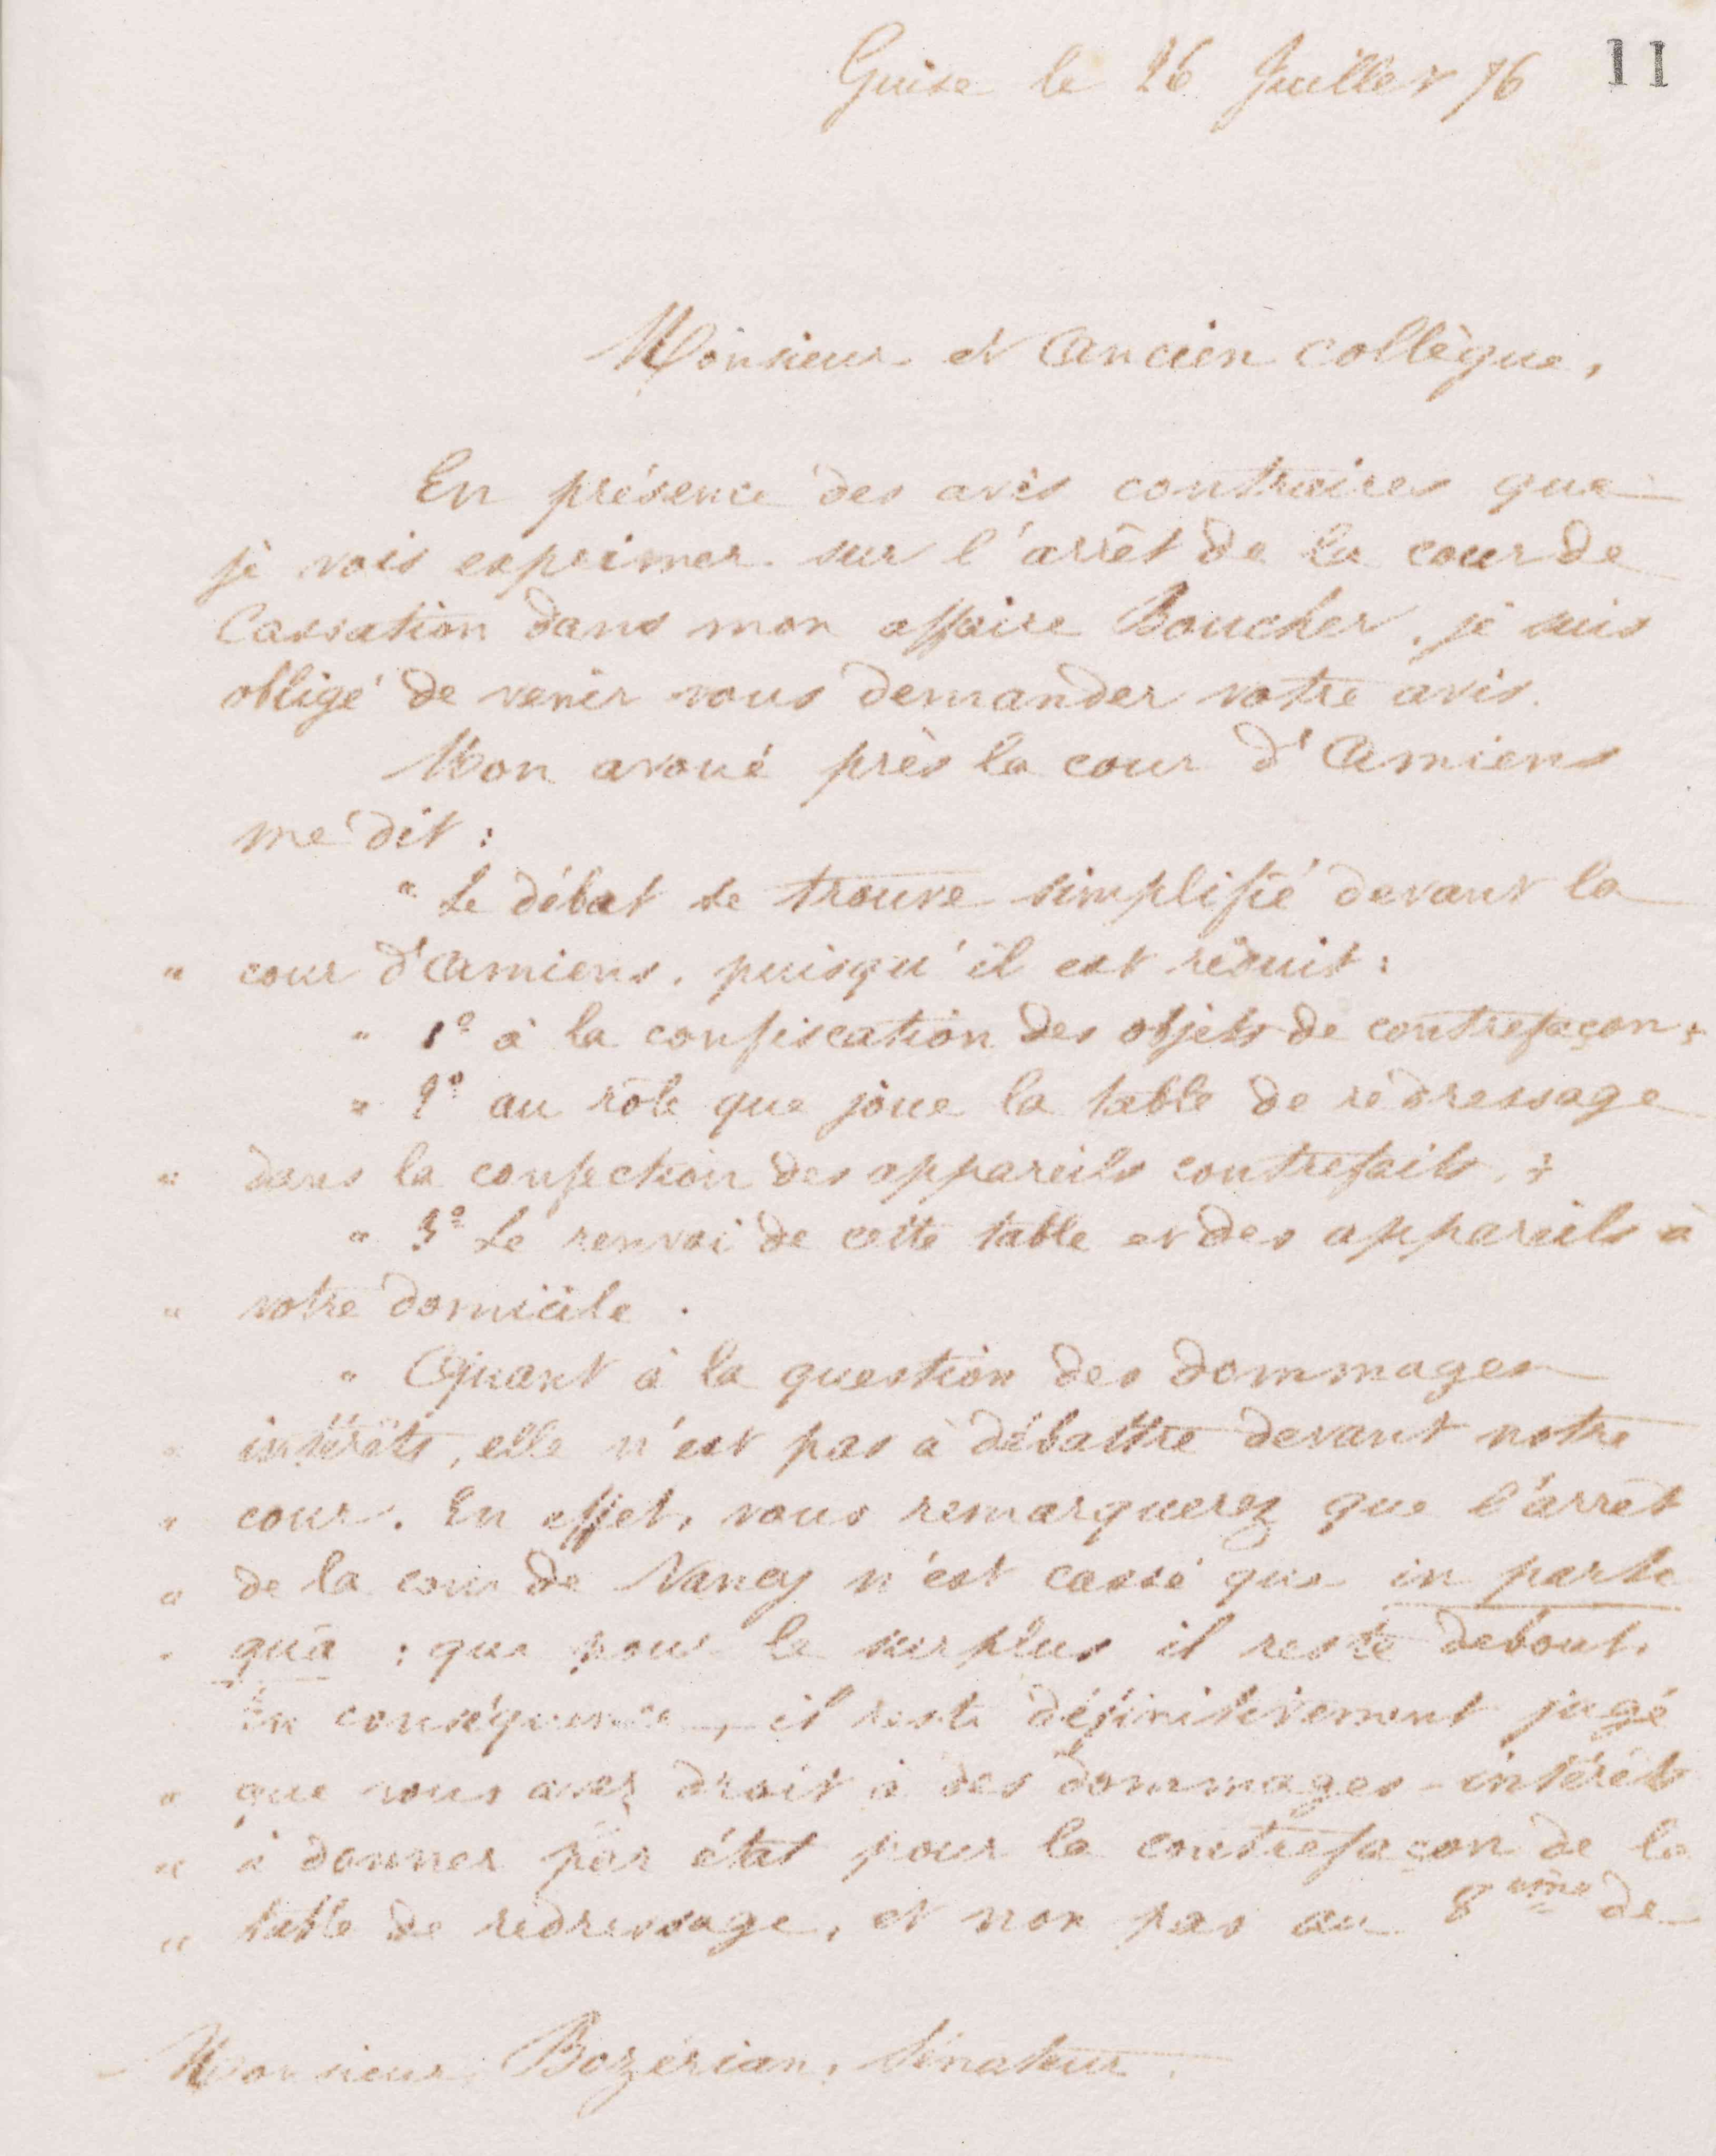 Guise le 26 Juillet 76 11
Monsieur et Ancien collègue,
En présence des avis contraires que
je vois exprimer sur l'arrêt de la cour de
Cassation dans mon affaire Boucher, je suis
obligé de venir vous demander votre avis.
Mon avoué près la cour d'Amiens
me dit :
" Le débat se trouve simplifié devant la
" cour d'Amiens, puisqu'il est réduit :
" 1º à la confiscation des objets de contrefaçon ;
" 2º au rôle que joue la table de redressage
" dans la confection des appareils contrefaits ;
" 3º Le renvoi de cette table et des appareils à
" votre domicile.
" Quant à la question des dommages
" intérêts, elle n'est pas à débattre devant notre
" cour. En effet, vous remarquerez que l'arrêt
" de la cour de Nancy n'est cassé que in parte
" quâ : que pour le surplus il reste debout.
En conséquence, il reste définitivement jugé
" que vous avez droit à des dommages-intérêts
" à donner par état pour la contrefaçon de la
" table de redressage, et non pas au 8ème de
Monsieur Bozérian, Sénateur.